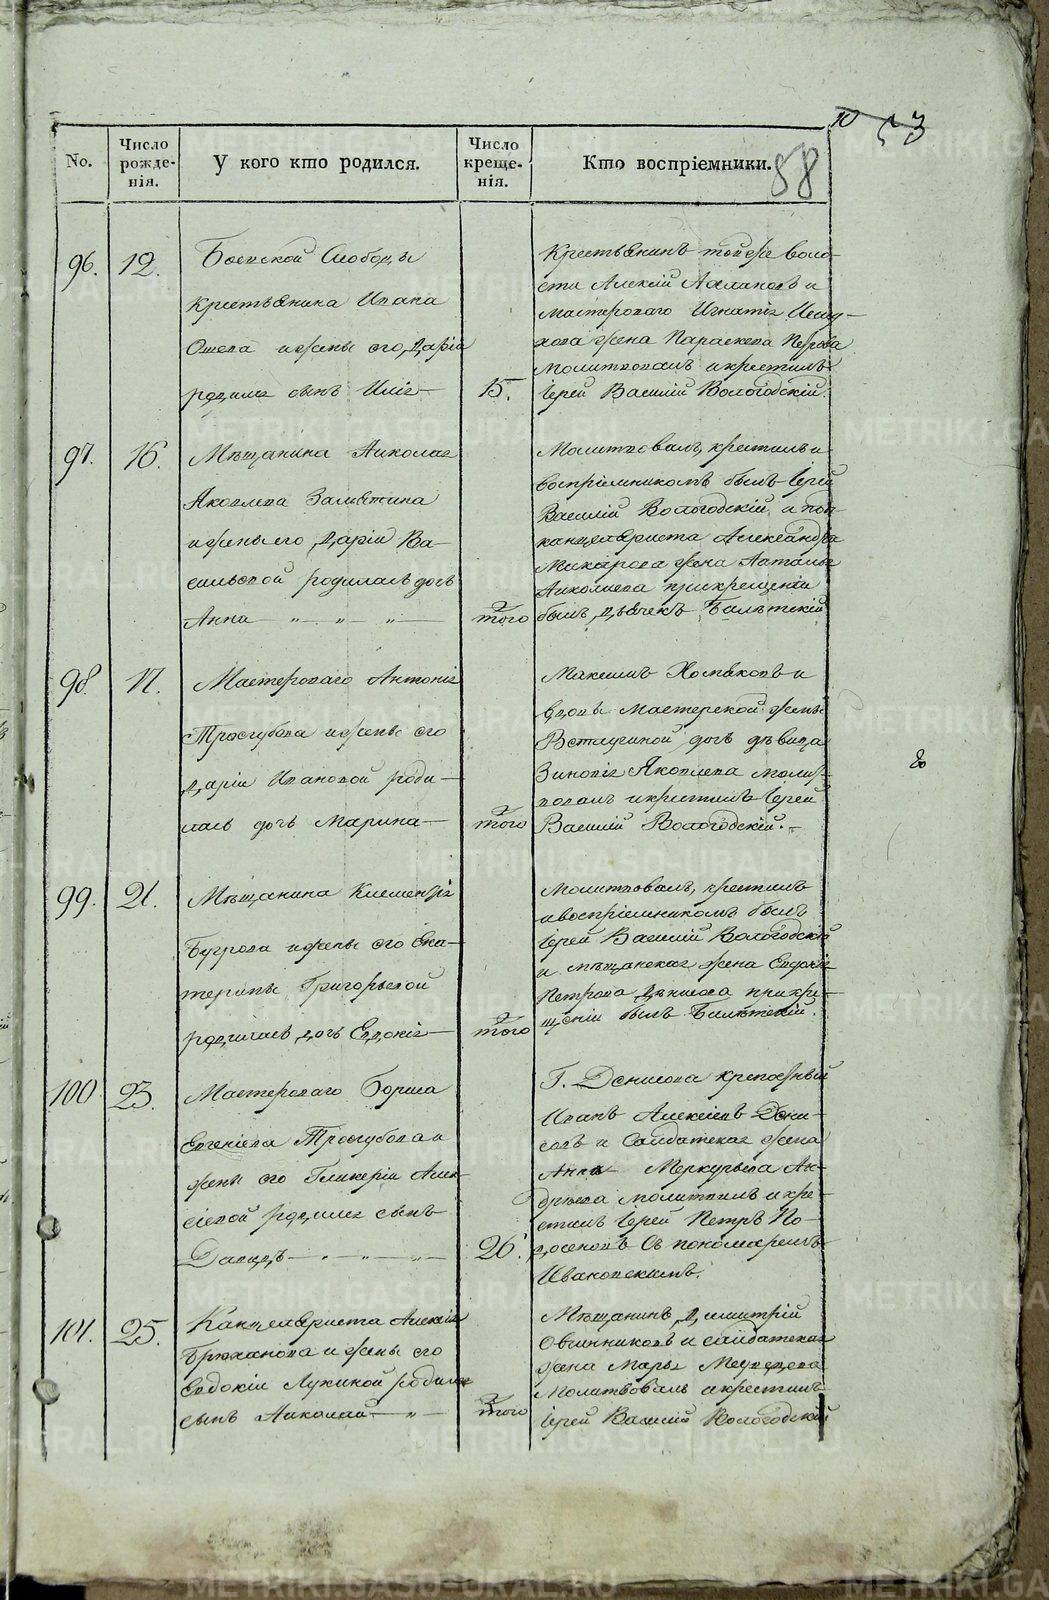 53
58
No.
Число рожде- нія.
У кого кто родился.
Число креще- нія.
Кто воспріемники.
96.
12.
Боевской Слободы
крестьянина Ивана
Ошева и жены его Даріи
родился сынъ Илія
15.
Крестьянинъ тойже воло-
сти Алексій и
Мастероваго Игнатія
жена Параскева Петрова
молитвовалъ и крестилъ
Іерей Василій Вологодскій.
97.
16.
Мѣщанина Николая
Яковлева Замятина
и жены его Даріи Ва-
сильевой родилась дочь
Анна — „ — „ — „ —
того
Молитвовалъ, крестилъ и
воспріемникомъ былъ Іерей
Василій Вологодскій и
канцеляриста Александра
Макарова жена Наталья
Николаева при крещеніи
былъ дьячекъ
98.
17.
Мастероваго Антонія
Трясгубова и жены его
Даріи Ивановой роди-
лась дочь Марина—
того
Максимъ Хомяковъ и
вдовы Мастерской жены
дочь дѣвица
Зиновія Яковлева молит-
вовалъ и крестилъ Іерей
Василій Вологодскій.
99.
21.
Мѣщанина Климентія
Бугрова и жены его Ека-
терины Григорьевой
родилась дочь Евдокія
того
Молитвовалъ, крестилъ
и воспріемникомъ былъ
Іерей Василій Вологодскій
и мѣщанская жена Евдокія
Петрова при кре-
щеніи былъ
100.
23.
Мастероваго Бориса
Евгеніева Трясгубова и
жены его Гликеріи Алек-
сіевой родился сынъ
Давидъ — „ — „ — „ —
26.
Г. Денисова крепостный
Иванъ Алексіевъ Дени-
совъ и Салдатская жена
Анна Меркурьева Ан-
дрѣева молитвилъ и кре-
стилъ Іерей Петръ По-
досеновъ съ пономаремъ
Ивановскимъ.
101.
25.
Канцеляриста Алексія
Брюханова и жены его
Евдокіи Лукиной родился
сынъ Николай — „ —
того
Мѣщанинъ Димитрій
Овчинниковъ и салдатская
жена Марья
Молитвовалъ и крестилъ
Іерей Василій Вологодскій
METRIKI.GASO-URAL.RU